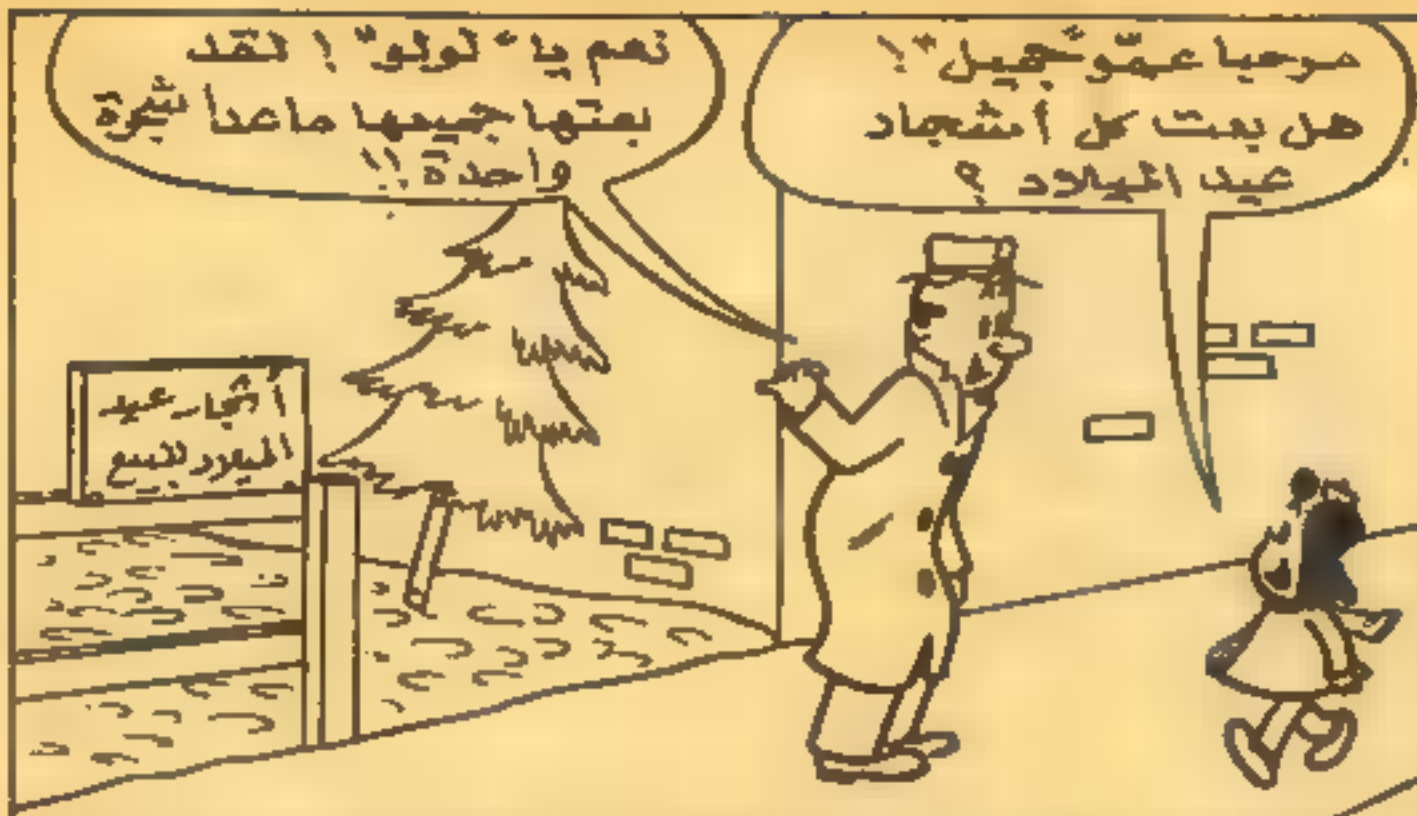 مرحبا عمّو "جميل"!
هل بعت كل أشجار
عيد الميلاد ؟
نعم يا "لولو" ! لقد
بعتها جميعها ماعدا شجرة
واحدة !!
أشجار عيد
الميلاد للبيع